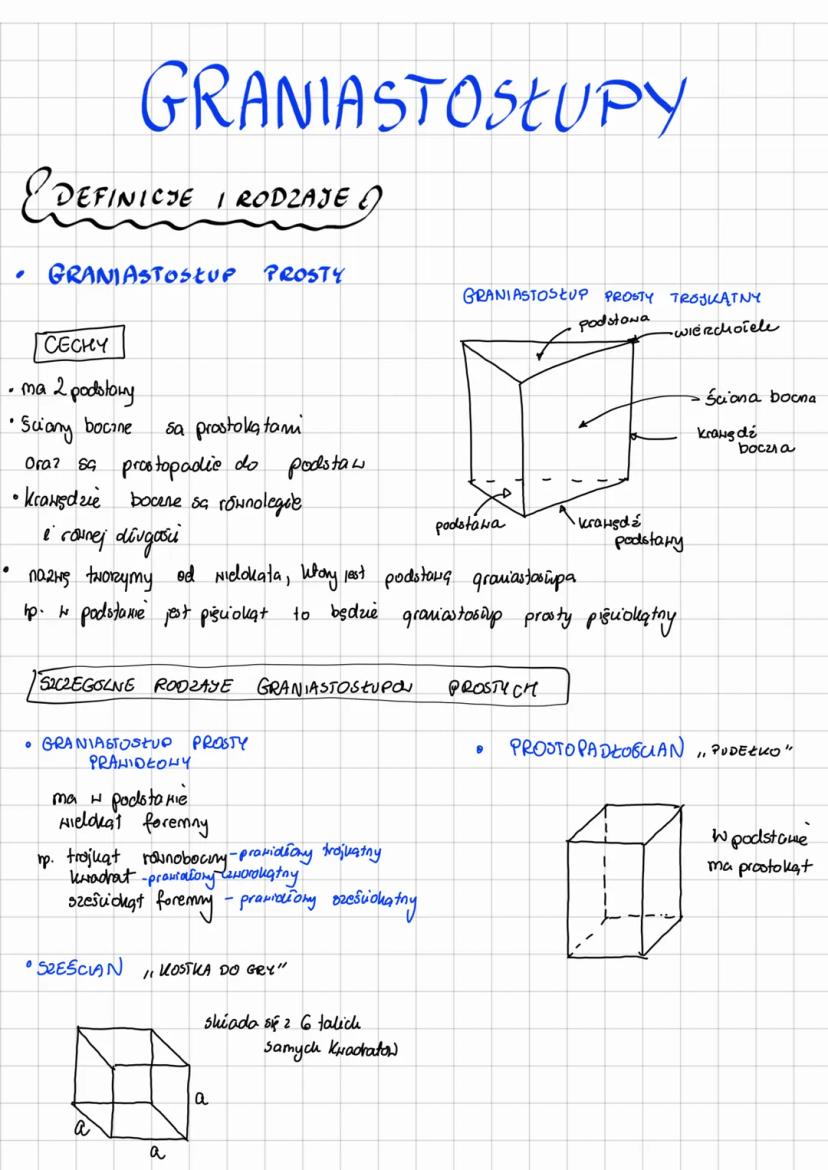 GRANIASTOSŁUPY
DEFINICJE I RODZAJE
• GRANIASTOSŁUP PROSTY
CECHY
• ma 2 podstawy
• Ściany boczne są prostokątami
oraz są prostopadłe do podstaw
• Krawędzie boczne są równoległe
i równej długości
GRANIASTOSŁUP PROSTY TRÓJKĄTNY
podstawa
wierzchołek
ściana boczna
krawędź
boczna
podstawa
krawędź
podstawy
• nazwę tworzymy od wielokąta, który jest podstawą graniastosłupa
np. w podstawie jest pięciokąt to będzie graniastosłup prosty pięciokątny
SZCZEGÓLNE RODZAJE GRANIASTOSŁUPÓW PROSTYCH
• GRANIASTOSŁUP PROSTY
PRAWIDŁOWY
ma w podstawie
wielokąt foremny
np. trójkąt równoboczny - prawidłowy trójkątny
kwadrat - prawidłowy czworokątny
sześciokąt foremny - prawidłowy sześciokątny
• PROSTOPADŁOŚCIAN „PUDEŁKO"
W podstawie
ma prostokąt
• SZEŚCIAN „KOSTKA DO GRY"
składa się z 6 takich
samych kwadratów
a
a
a